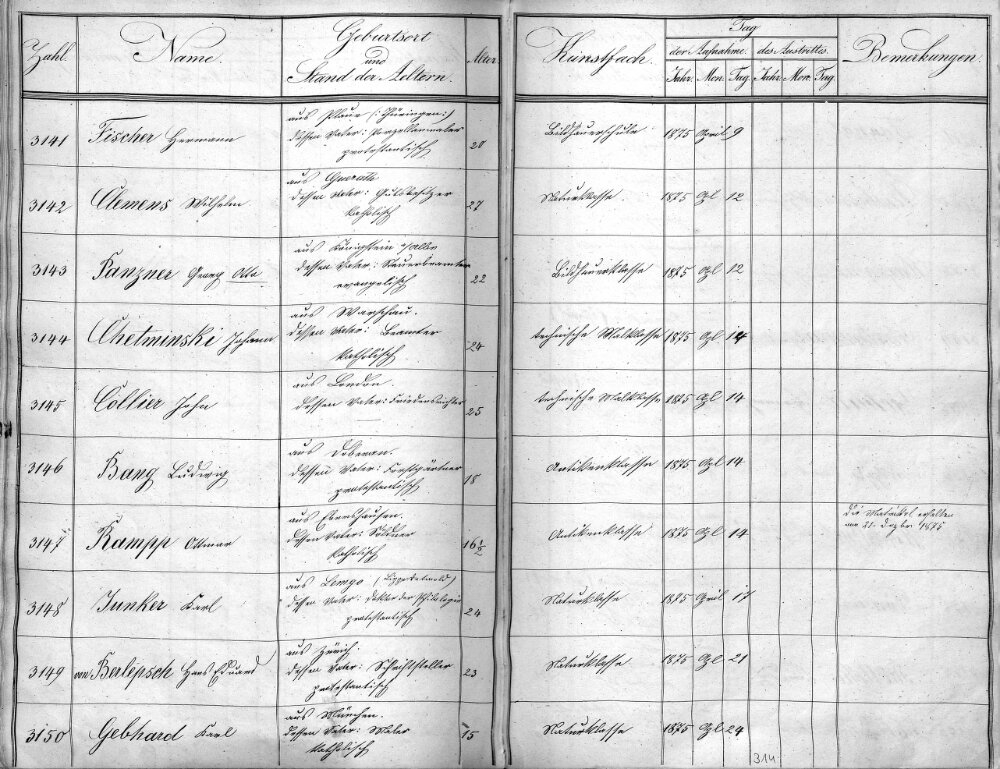 Zahl. Name. Geburtsort und Stand der Aeltern. Alter Kunstfach. Tag der Aufnahme. des Austrittes. Bemerkungen.
Jahr. Mon. Tag Jahr. Mon. Tag
aus Plaue (: Thüringen :)
3141 Fischer Hermann dessen Vater: Porzellanmaler 20 Bildhauerschule 1875 April 9
protestantisch
aus
3142 Clemens Wilhelm dessen Vater: Gutsbesitzer 27 Naturklasse. 1875 Apl 12
katholisch
aus Königstein
3143 Panzner Georg Otto dessen Vater: Steuerbeamter 22 Bildhauerklasse 1875 Apl 12
evangelisch
aus Warschau.
3144 Chetminski Johann dessen Vater: Beamter 24 technische Malklasse 1875 Apl 14
katholisch
aus London.
3145 Collier John dessen Vater: Friedensrichter 25 technische Malklasse 1875 Apl 14
aus Doberan.
3146 Bang Ludwig dessen Vater: Forstgärtner 18 Antikenklasse 1875 Apl 14
protestantisch
aus Ebershausen.
3147 Kampp Ottmar dessen Vater: Söldner 16 1/2 Antikenklasse 1875 Apl 14 Die Matrikel erhalten am 21. Dezbr 1875
katholisch
aus Lemgo (Lippe Detmold)
3148 Junker Karl dessen Vater: Doktor der Philologie 24 Naturklasse 1875 April 17
protestantisch
aus Zürich.
3149 von Berlepsch Hans Eduard dessen Vater: Schriftsteller 23 Naturklasse. 1875 Apl 21
protestantisch
aus München.
3150 Gebhard Karl dessen Vater: Maler 15 Naturklasse 1875 Apl 24
katholisch
314